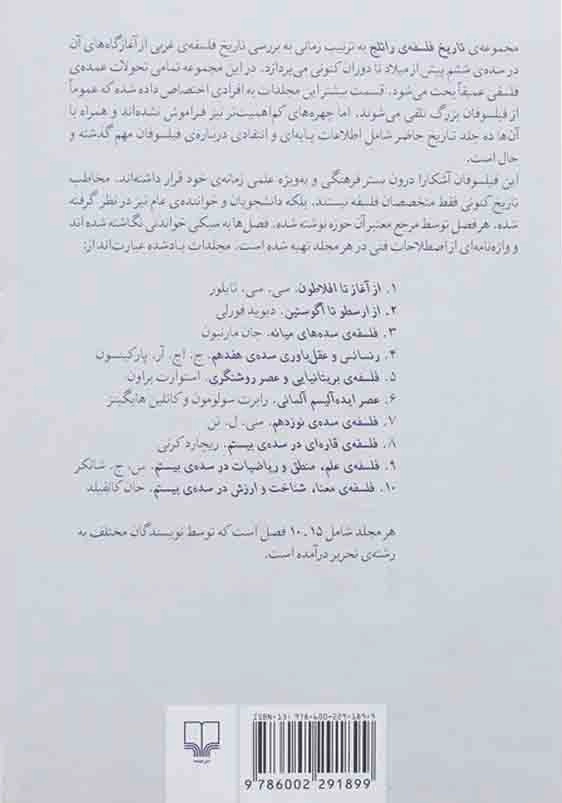 مجموعه‌ی تاریخ فلسفه‌ی راتلج به ترتیب زمانی به بررسی تاریخ فلسفه‌ی غربی از آغازگاه‌های آن
در سده‌ی ششم پیش از میلاد تا دوران کنونی می‌پردازد. در این مجموعه تمامی تحولات عمده‌ی
فلسفی عمیقاً بحث می‌شود. قسمت بیشتر این مجلدات به افرادی اختصاص داده شده که عموماً
از فیلسوفان بزرگ تلقی می‌شوند. اما چهره‌های کم‌اهمیت‌تر نیز فراموش نشده‌اند و همراه با
آن‌ها ده جلد تاریخ حاضر شامل اطلاعات پایه‌ای و انتقادی درباره‌ی فیلسوفان مهم گذشته و
حال است.
این فیلسوفان آشکارا درون بستر فرهنگی و به‌ویژه علمی زمانه‌ی خود قرار داشته‌اند. مخاطب
تاریخ کنونی فقط متخصصان فلسفه نیستند. بلکه دانشجویان و خواننده‌ی عام نیز در نظر گرفته
شده. هر فصل توسط مرجع معتبر آن حوزه نوشته شده. فصل‌ها به سبکی خواندنی نگاشته شده اند
و واژه‌نامه‌ای از اصطلاحات فنی در هر مجلد تهیه شده است. مجلدات یادشده عبارت‌اند از:
۱. از آغاز تا افلاطون. سی. سی. تایلور
۲. از ارسطو تا آگوستین. دیوید فورلی
۳. فلسفه‌ی سده‌های میانه. جان مارنبون
۴. رنسانس و عقل‌باوری سده‌ی هفدهم. ج. اچ. آر. پارکینسون
۵. فلسفه‌ی بریتانیایی و عصر روشنگری. استوارت براون
۶. عصر ایده‌آلیسم آلمانی. رابرت سولومون و کاتلین هایگینز
۷. فلسفه‌ی سده‌ی نوزدهم. سی. ل. تن
۸. فلسفه‌ی قاره‌ای در سده‌ی بیستم. ریچارد کرنی
۹. فلسفه‌ی علم، منطق و ریاضیات در سده‌ی بیستم. س. ج. شانکر
۱۰. فلسفه‌ی معنا، شناخت و ارزش در سده‌ی بیستم. جان کانفیلد
هر مجلد شامل ۱۵ ـ ۱۰ فصل است که توسط نویسندگان مختلف به
رشته‌ی تحریر درآمده است.
ISBN-13: 978-600-229-189-9
9 786002 291899